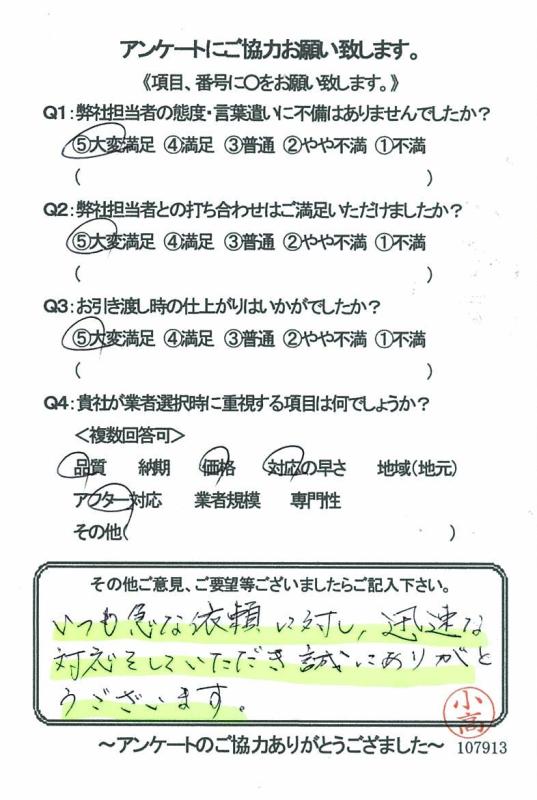 アンケートにご協力お願い致します。
《項目、番号に〇をお願い致します。》
Q1:弊社担当者の態度・言葉遣いに不備はありませんでしたか?
⑤大変満足 ④満足 ③普通 ②やや不満 ①不満
( )
Q2:弊社担当者との打ち合わせはご満足いただけましたか?
⑤大変満足 ④満足 ③普通 ②やや不満 ①不満
( )
Q3:お引き渡し時の仕上がりはいかがでしたか?
⑤大変満足 ④満足 ③普通 ②やや不満 ①不満
( )
Q4:貴社が業者選択時に重視する項目は何でしょうか?
<複数回答可>
品質 納期 価格 対応の早さ 地域(地元)
アフター対応 業者規模 専門性
その他( )
その他ご意見、ご要望等ございましたらご記入下さい。
いつも急な依頼に対し、迅速な
対応をしていただき誠にありがと
うございます。
小高
~アンケートのご協力ありがとうござました~ 107913